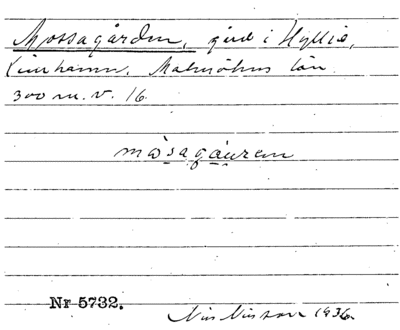 Mossagården, gård i Hyllie,
Limhamn. Malmöhus län
300 m. V. 16.
måsagáuren
Nr 5732.
Nils Nilsson 1936